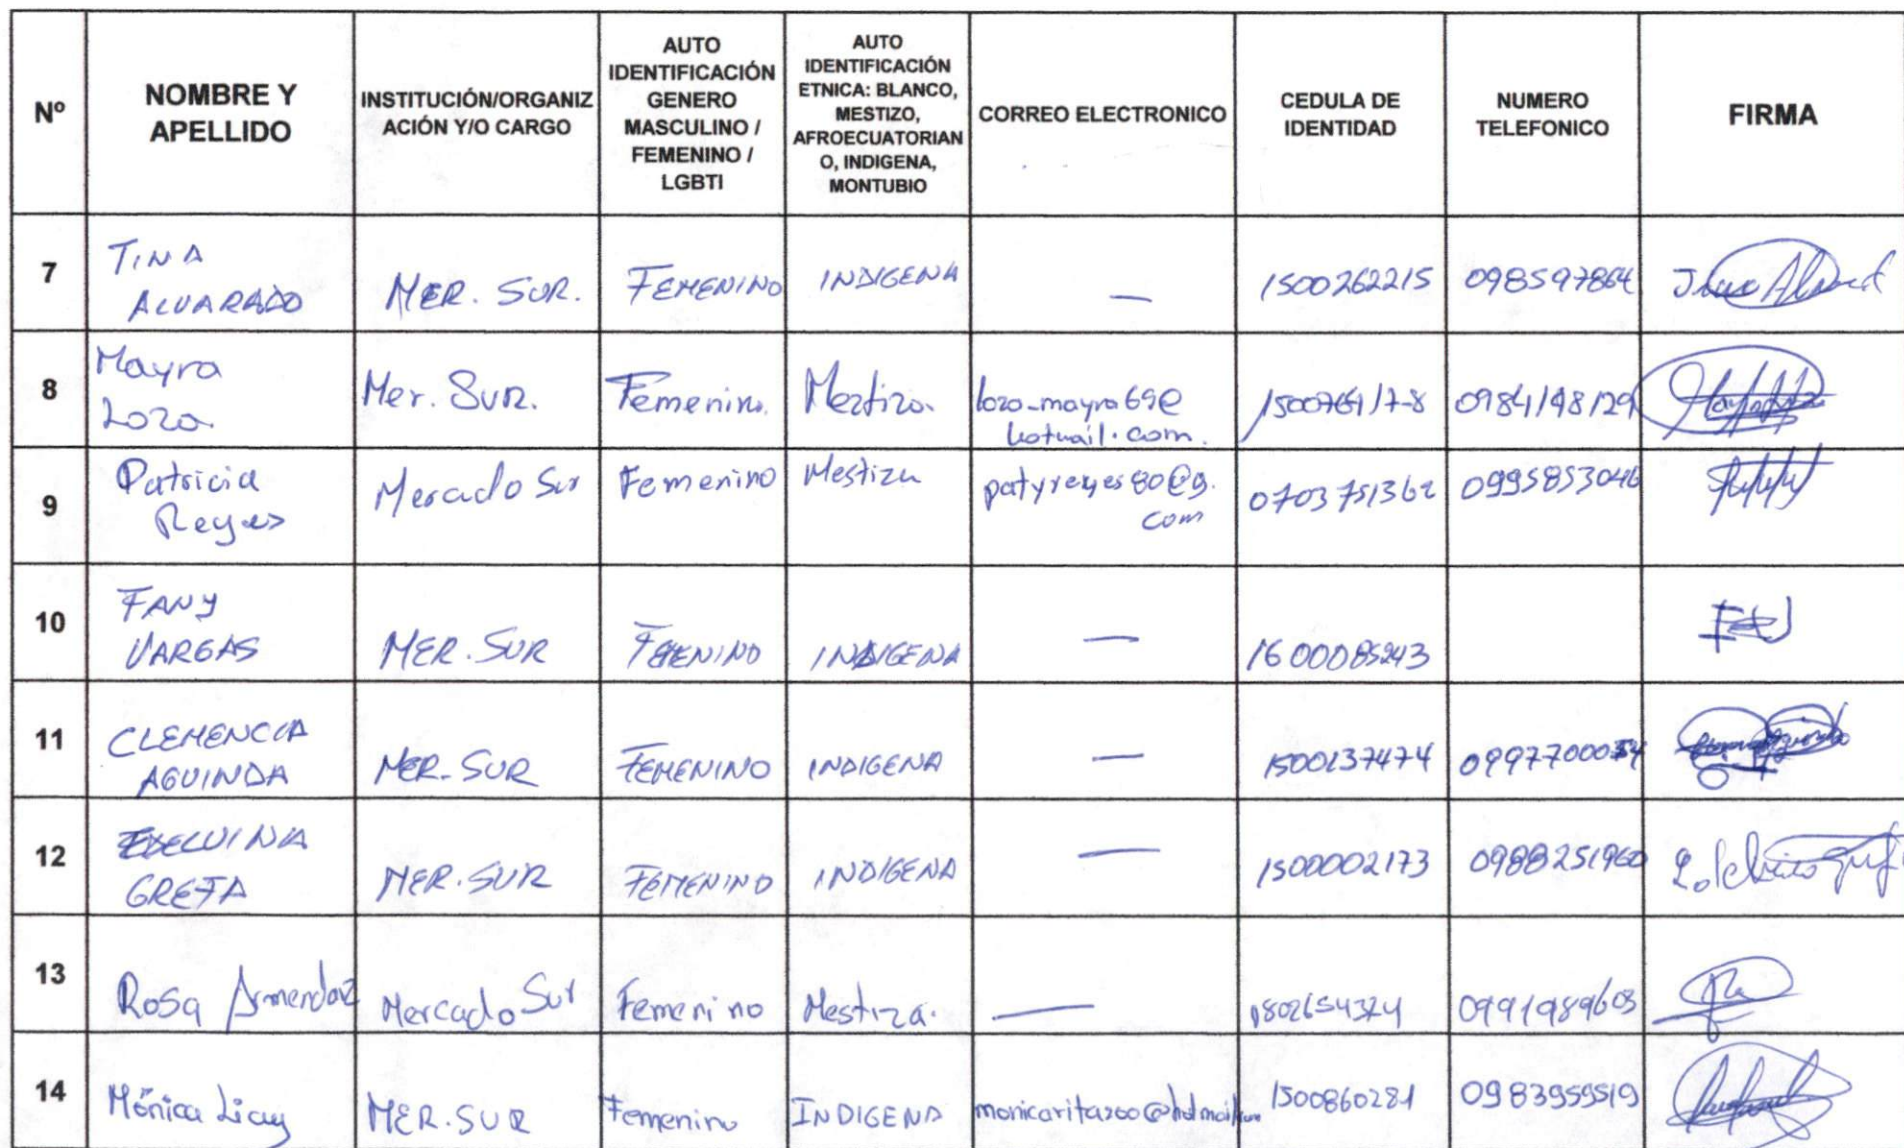 Nº
NOMBRE Y
APELLIDO
INSTITUCIÓN/ORGANIZ
ACIÓN Y/O CARGO
AUTO
IDENTIFICACIÓN
GENERO
MASCULINO /
FEMENINO /
LGBTI
AUTO
IDENTIFICACIÓN
ETNICA: BLANCO,
MESTIZO,
AFROECUATORIAN
O, INDIGENA,
MONTUBIO
CORREO ELECTRONICO
CEDULA DE
IDENTIDAD
NUMERO
TELEFONICO
FIRMA
7
TINA
ALVARADO
MER. SUR.
FEMENINO
INDIGENA
—
1500262215
098597864
8
Mayra
Loza
Mer. Sur.
Femenino.
Meztizo.
hotmail.com.
0984148129
9
Patricia
Reyes
Mercado Sur
Femenino
Mestiza
patyreyes80@g.
com
0703751362
0995853046
10
FANY
VARGAS
MER. SUR
FEMENINO
INDIGENA
—
1600085243
11
CLEMENCIA
AGUINDA
MER. SUR
FEMENINO
INDIGENA
—
1500137474
12
GREFA
MER. SUR
FEMENINO
INDIGENA
—
1500002173
0988251960
13
Rosa Armendariz
Mercado Sur
Femenino
Mestiza.
—
0991989603
14
Mónica Licuy
MER. SUR
Femenino
INDIGENA
1500860281
0983959519